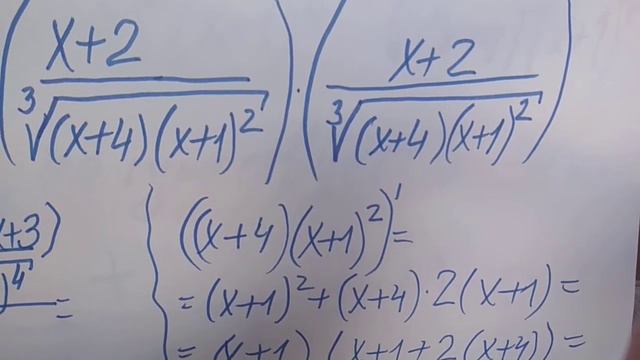 (x+2 / ∛((x+4)(x+1)²)) · (x+2 / ∛((x+4)(x+1)²))
x+3)
)⁴ =
((x+4)(x+1)²)' =
= (x+1)² + (x+4)·2(x+1) =
= (x+1)(x+1+2(x+4)) =